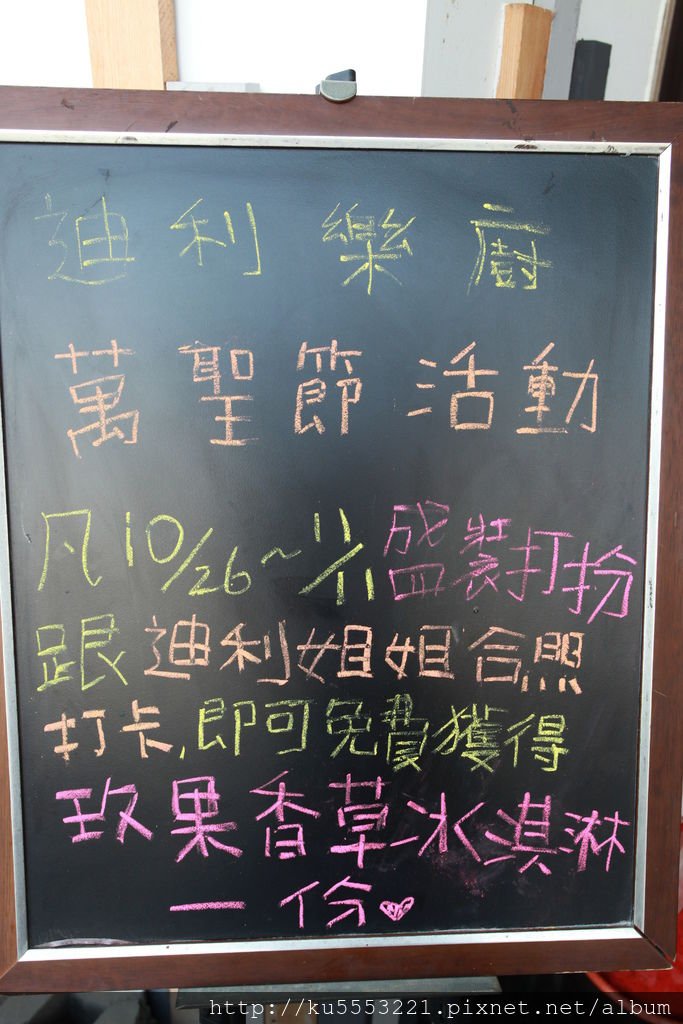 迪利樂廚
萬聖節活動
凡10/26~11/11盛裝打扮
跟迪利姐姐合照
打卡,即可免費獲得
玫果香草冰淇淋
一份♥
http://ku5553221.pixnet.net/album